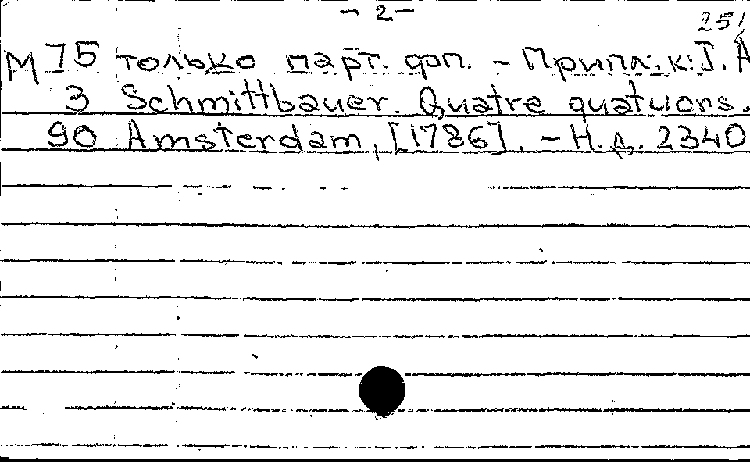 - 2 -
251
М 75 только парт. фп. - Припл. к: J. A
3 Schmittbauer. Quatre quatuors.
90 Amsterdam, [1786]. - Н. д. 2340